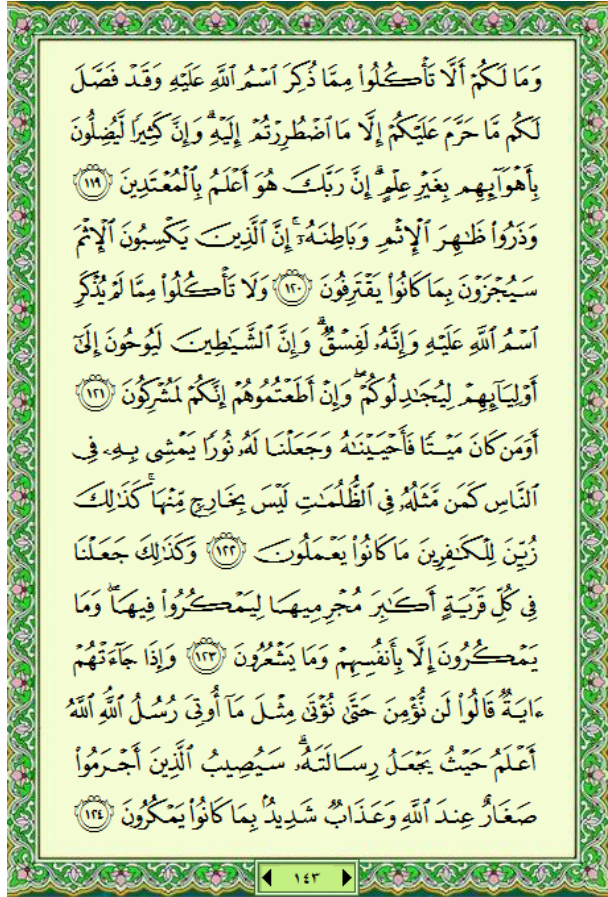 وَمَا لَكُمْ أَلَّا تَأْكُلُوا۟ مِمَّا ذُكِرَ ٱسْمُ ٱللَّهِ عَلَيْهِ وَقَدْ فَصَّلَ
لَكُم مَّا حَرَّمَ عَلَيْكُمْ إِلَّا مَا ٱضْطُرِرْتُمْ إِلَيْهِ ۗ وَإِنَّ كَثِيرًا لَّيُضِلُّونَ
بِأَهْوَآئِهِم بِغَيْرِ عِلْمٍ ۗ إِنَّ رَبَّكَ هُوَ أَعْلَمُ بِٱلْمُعْتَدِينَ ١١٩
وَذَرُوا۟ ظَٰهِرَ ٱلْإِثْمِ وَبَاطِنَهُۥٓ ۚ إِنَّ ٱلَّذِينَ يَكْسِبُونَ ٱلْإِثْمَ
سَيُجْزَوْنَ بِمَا كَانُوا۟ يَقْتَرِفُونَ ١٢٠ وَلَا تَأْكُلُوا۟ مِمَّا لَمْ يُذْكَرِ
ٱسْمُ ٱللَّهِ عَلَيْهِ وَإِنَّهُۥ لَفِسْقٌ ۗ وَإِنَّ ٱلشَّيَٰطِينَ لَيُوحُونَ إِلَىٰٓ
أَوْلِيَآئِهِمْ لِيُجَٰدِلُوكُمْ ۖ وَإِنْ أَطَعْتُمُوهُمْ إِنَّكُمْ لَمُشْرِكُونَ ١٢١
أَوَمَن كَانَ مَيْتًا فَأَحْيَيْنَٰهُ وَجَعَلْنَا لَهُۥ نُورًا يَمْشِى بِهِۦ فِى
ٱلنَّاسِ كَمَن مَّثَلُهُۥ فِى ٱلظُّلُمَٰتِ لَيْسَ بِخَارِجٍ مِّنْهَا ۚ كَذَٰلِكَ
زُيِّنَ لِلْكَٰفِرِينَ مَا كَانُوا۟ يَعْمَلُونَ ١٢٢ وَكَذَٰلِكَ جَعَلْنَا
فِى كُلِّ قَرْيَةٍ أَكَٰبِرَ مُجْرِمِيهَا لِيَمْكُرُوا۟ فِيهَا ۖ وَمَا
يَمْكُرُونَ إِلَّا بِأَنفُسِهِمْ وَمَا يَشْعُرُونَ ١٢٣ وَإِذَا جَآءَتْهُمْ
ءَايَةٌ قَالُوا۟ لَن نُّؤْمِنَ حَتَّىٰ نُؤْتَىٰ مِثْلَ مَآ أُوتِىَ رُسُلُ ٱللَّهِ ۘ ٱللَّهُ
أَعْلَمُ حَيْثُ يَجْعَلُ رِسَالَتَهُۥ ۗ سَيُصِيبُ ٱلَّذِينَ أَجْرَمُوا۟
صَغَارٌ عِندَ ٱللَّهِ وَعَذَابٌ شَدِيدٌۢ بِمَا كَانُوا۟ يَمْكُرُونَ ١٢٤
١٤٣